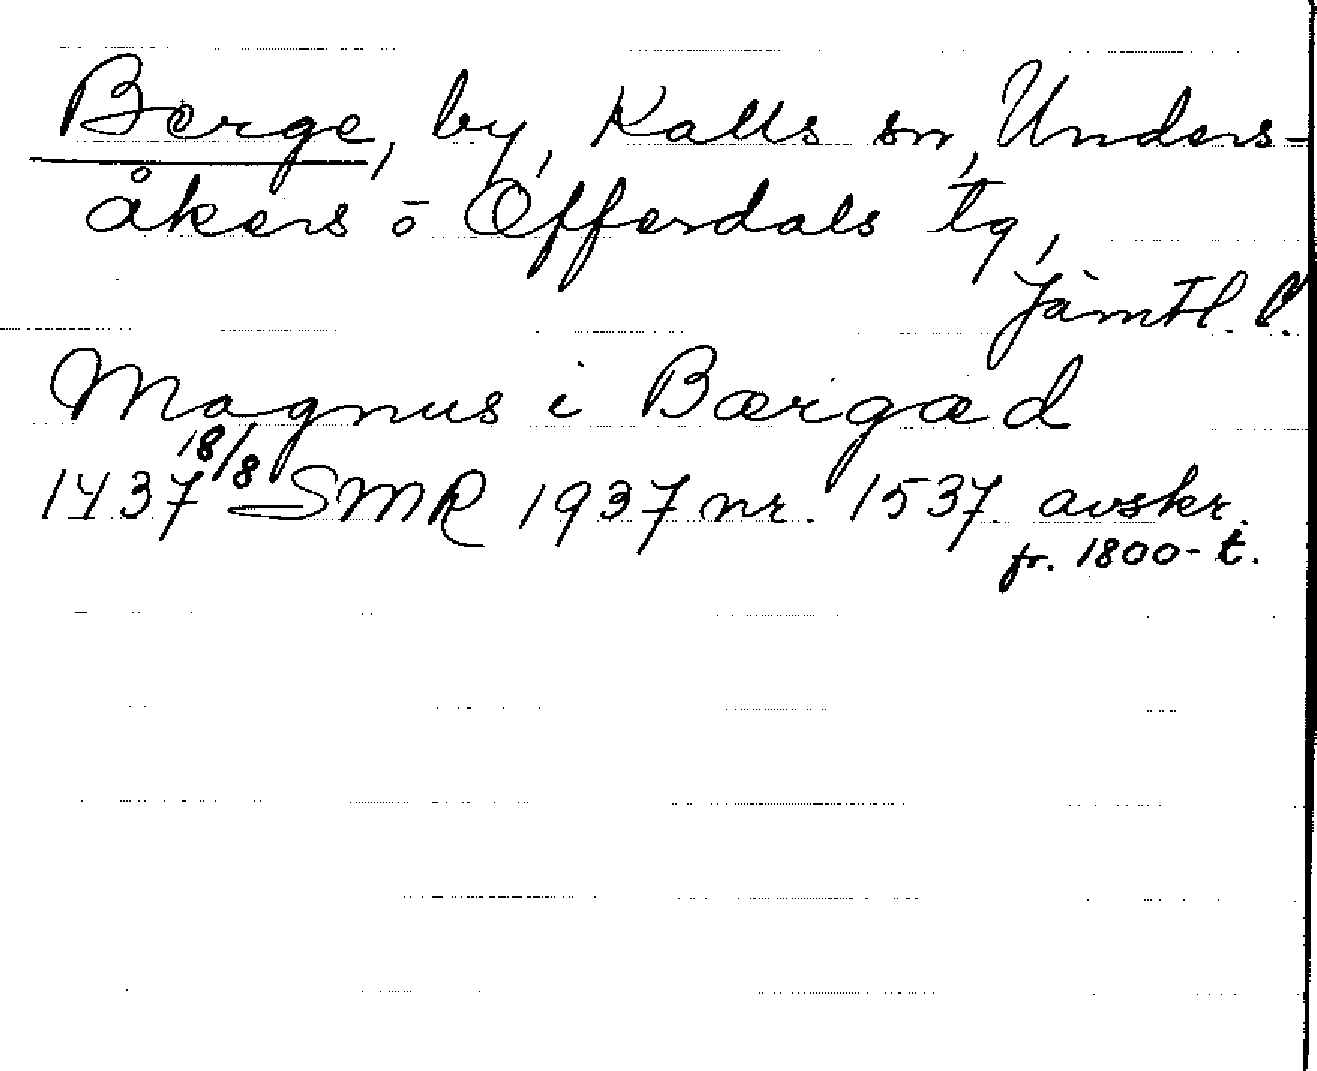 Berge, by, Kalls sn, Unders-
åkers o Offerdals tg,
Jämtl. l.
Magnus i Bærgæd
1437 18/8 SMR 1937 nr. 1537 avskr.
fr. 1800-t.